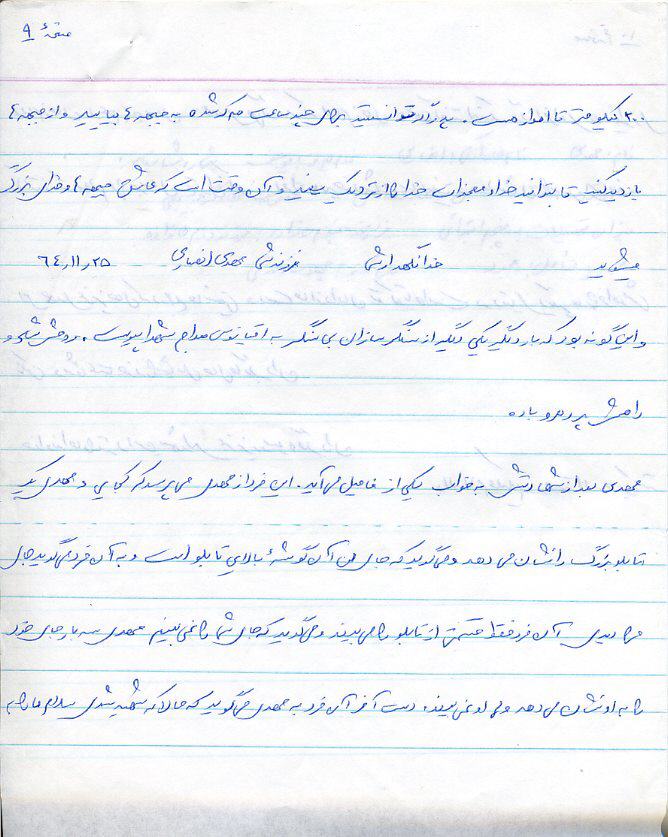 صفحهٔ ۹
۲۰۰ کیلومتر تا اهواز هست. پدر اگر توانستید برای چند ساعت هم که شده به جبهه‌ها بیایید و از جبهه‌ها
بازدید کنید تا بتوانید خدا و معجزات خدا را از نزدیک ببینید و آن وقت است که عاشق جبهه‌ها و خدای بزرگ
میشوید خدانگهدارشما فرزند شما مهدی انصاری ۶۴٫۱۱٫۲۵
و این گونه بود که بار دیگر یکی دیگر از سنگرسازان بی سنگر به اقیانوس مواج شهدا پیوست. روحش شاد و
راهش پر رهرو باد
مهدی بعد از شهادتش به خواب یکی از فامیل می آید. این فرد از مهدی می پرسد که کجایی و مهدی یک
تابلو بزرگ را نشان می دهد و می گوید که جای من آن گوشهٔ بالای تابلو است و به آن فرد می گوید جای
مرا دیدی آن فرد فقط قسمتی از تابلو را می بیند و می گوید که جای شما را نمی بینم مهدی سه بار جای خود
را به او نشان می دهد ولی او نمی بیند. دست آخر آن فرد به مهدی می گوید که حالا که شهید شدی سلام ما را به